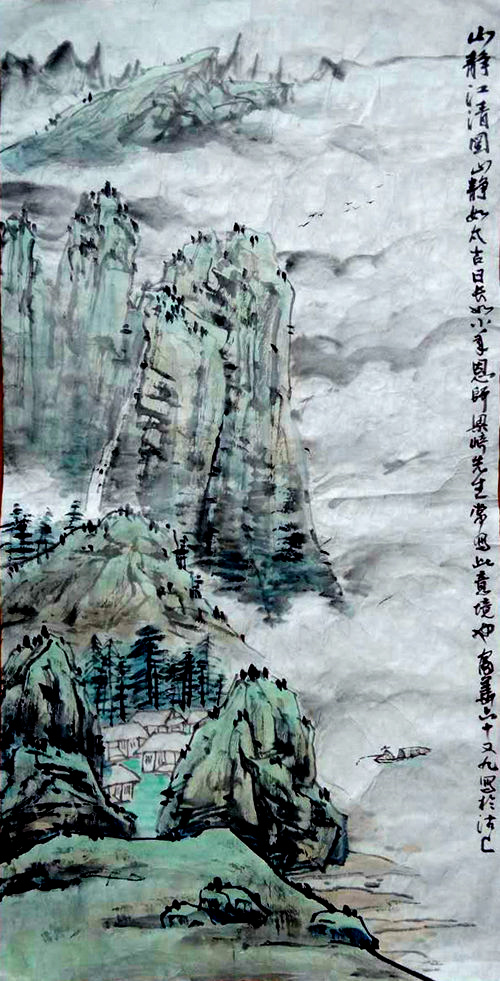 山静江清图山静如太古日长如小年恩师梁崎先生常写此意境也 六十又九写于沽上